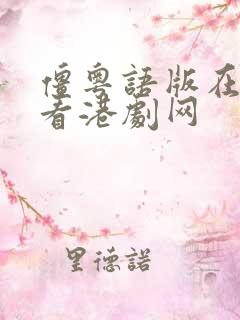 僵粤語版在
看港劇网
里德諾